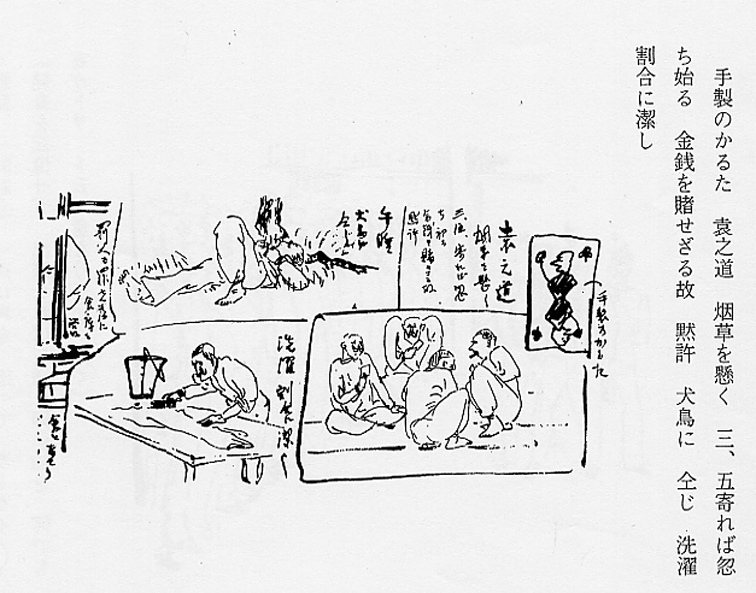 手製のかるた　袁之道　烟草を懸く　三、五寄れば忽
ち始る　金銭を賭せざる故　黙許　犬鳥に　仝じ　洗濯
割合に潔し
手製のかるた
袁之道
烟草を懸く
三、五寄れば忽
ち初る
金銭を賭せざる故
黙許
午睡
犬鳥に
仝じ
洗濯 割合に潔し